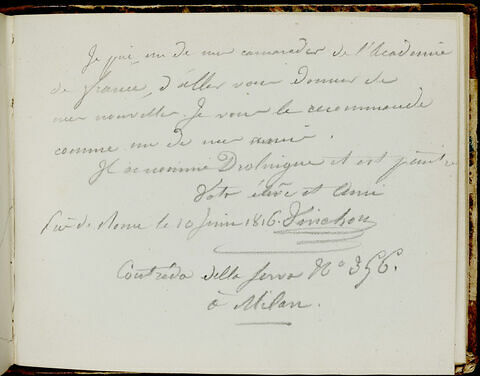 Je prie un de mes camarades de l'Académie
de france, d'aller vous donner de
mes nouvelles. Je vous le recommande
comme un de mes amis.
Il se nomme Drolingue et est peintre
Votre élève et ami
de Rome le 10 Juin 1816. Vinchon
Contrada della Serva N° 356.
à Milan.